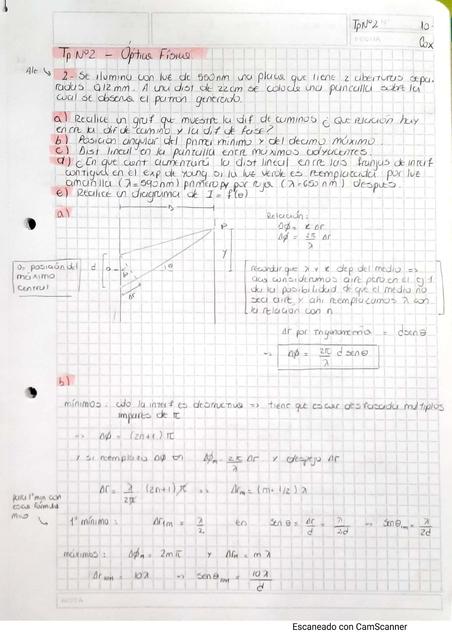 Tp N°2
10.
FECHA
Cox
Tp N°2 - Óptica Física
2- Se ilumina con luz de 500nm una placa que tiene 2 aberturas sepa-
radas 0,12mm. A una dist de 22cm se coloca una pantalla sobre la
cual se observa el patrón generado.
a) Realice un graf que muestre la dif de caminos ¿ que relación hay
entre la dif de camino y la dif de fase?
b) Posición angular del primer mínimo y del decimo máximo.
c) Dist lineal en la pantalla entre máximos adyacentes.
d) ¿En que cant aumentaría la dist lineal entre las franjas de interf
contigua en el exp de Young si la luz verde es reemplazada por luz
amarilla (λ=590nm) primero y por roja (λ=650nm) después.
e) Realice un diagrama de I = f(θ)
a)
Relación:
P
y
d
θ
Δr
Δφ = k Δr
Δφ = 2π/λ Δr
0= posición del
máximo
central
recordar que λ y k dep del medio =>
aca consideramos aire pero en el ej 1
da la posibilidad de que el medio no
sea aire, y ahi reemplazamos λ con
la relación con n
Δr por trigonometría = d senθ
=> Δφ = 2π/λ d senθ
b)
mínimos: cdo la interf es destructiva => tiene que estar desfasada múltiplos
impares de π
=> Δφ = (2n+1) π
y si reemplazo Δφ en Δφm = 2π/λ Δr y despejo Δr
Δr = λ/2π (2n+1) π => Δrm = (m+1/2) λ
para 1° min con
esas fórmula
m=0
1° mínimo: Δr1m = λ/2 en senθ = Δr/d = λ/2d => senθ1m = λ/2d
máximos: Δφm = 2mπ y Δrm = mλ
Δr = 10λ => senθ = 10λ/d
Escaneado con CamScanner